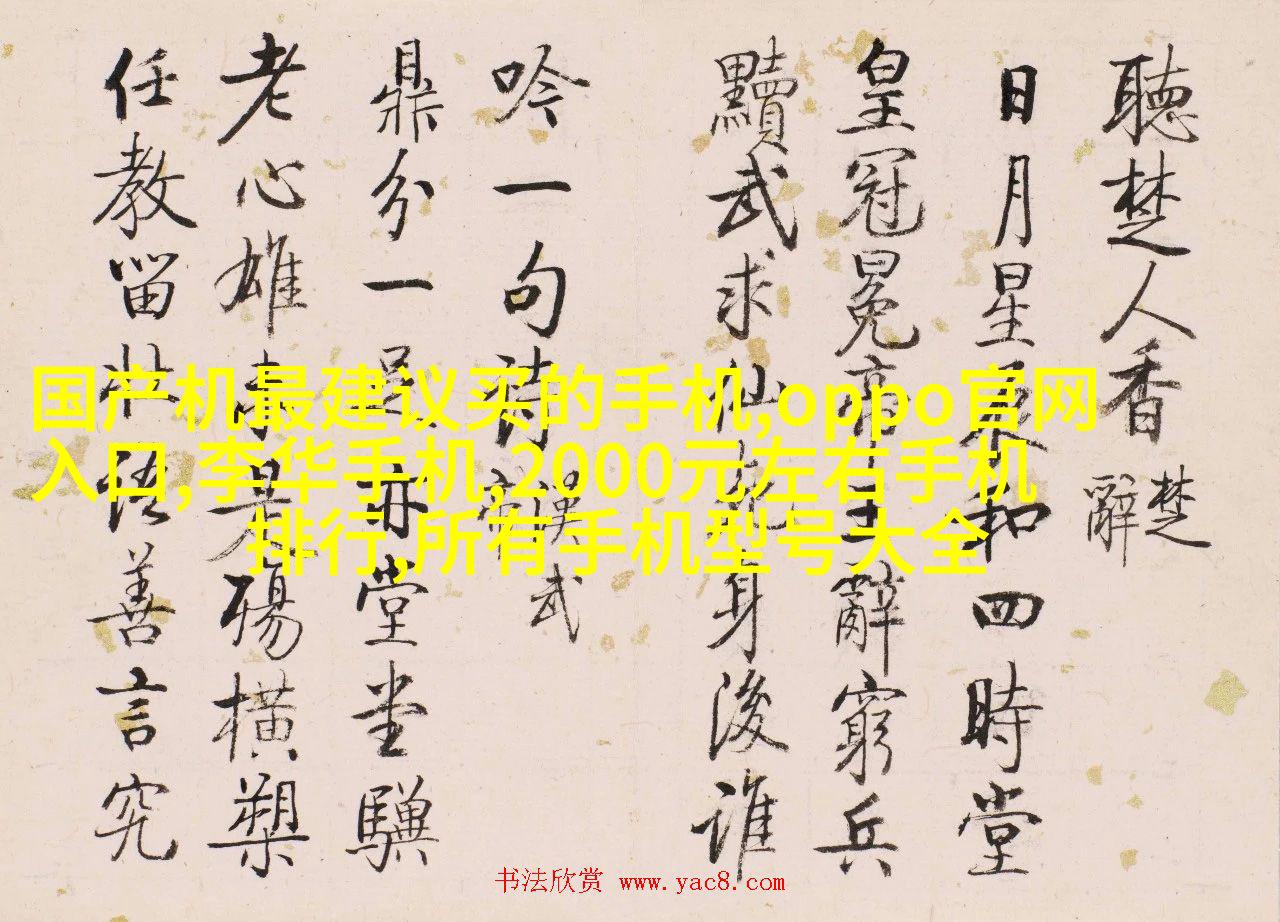 聽楚人香 楚辭
日月星辰和四時堂
皇冠冕帝王辭窮兵
黷武求仙死身後誰
吟一句詩 漢武帝
鼎分一亦堂堂驥
老心雄是殤橫槊
任教留壯語善言究
国产机最建议买的手机,oppo官网
入口,李华手机,2000元左右手机
排行,所有手机型号大全
书法欣赏 www.yac8.com